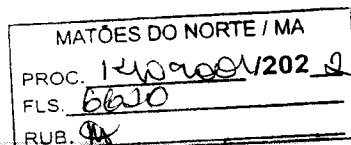 MATÕES DO NORTE / MA
PROC. 1409001/2022
FLS. 6620
RUB.